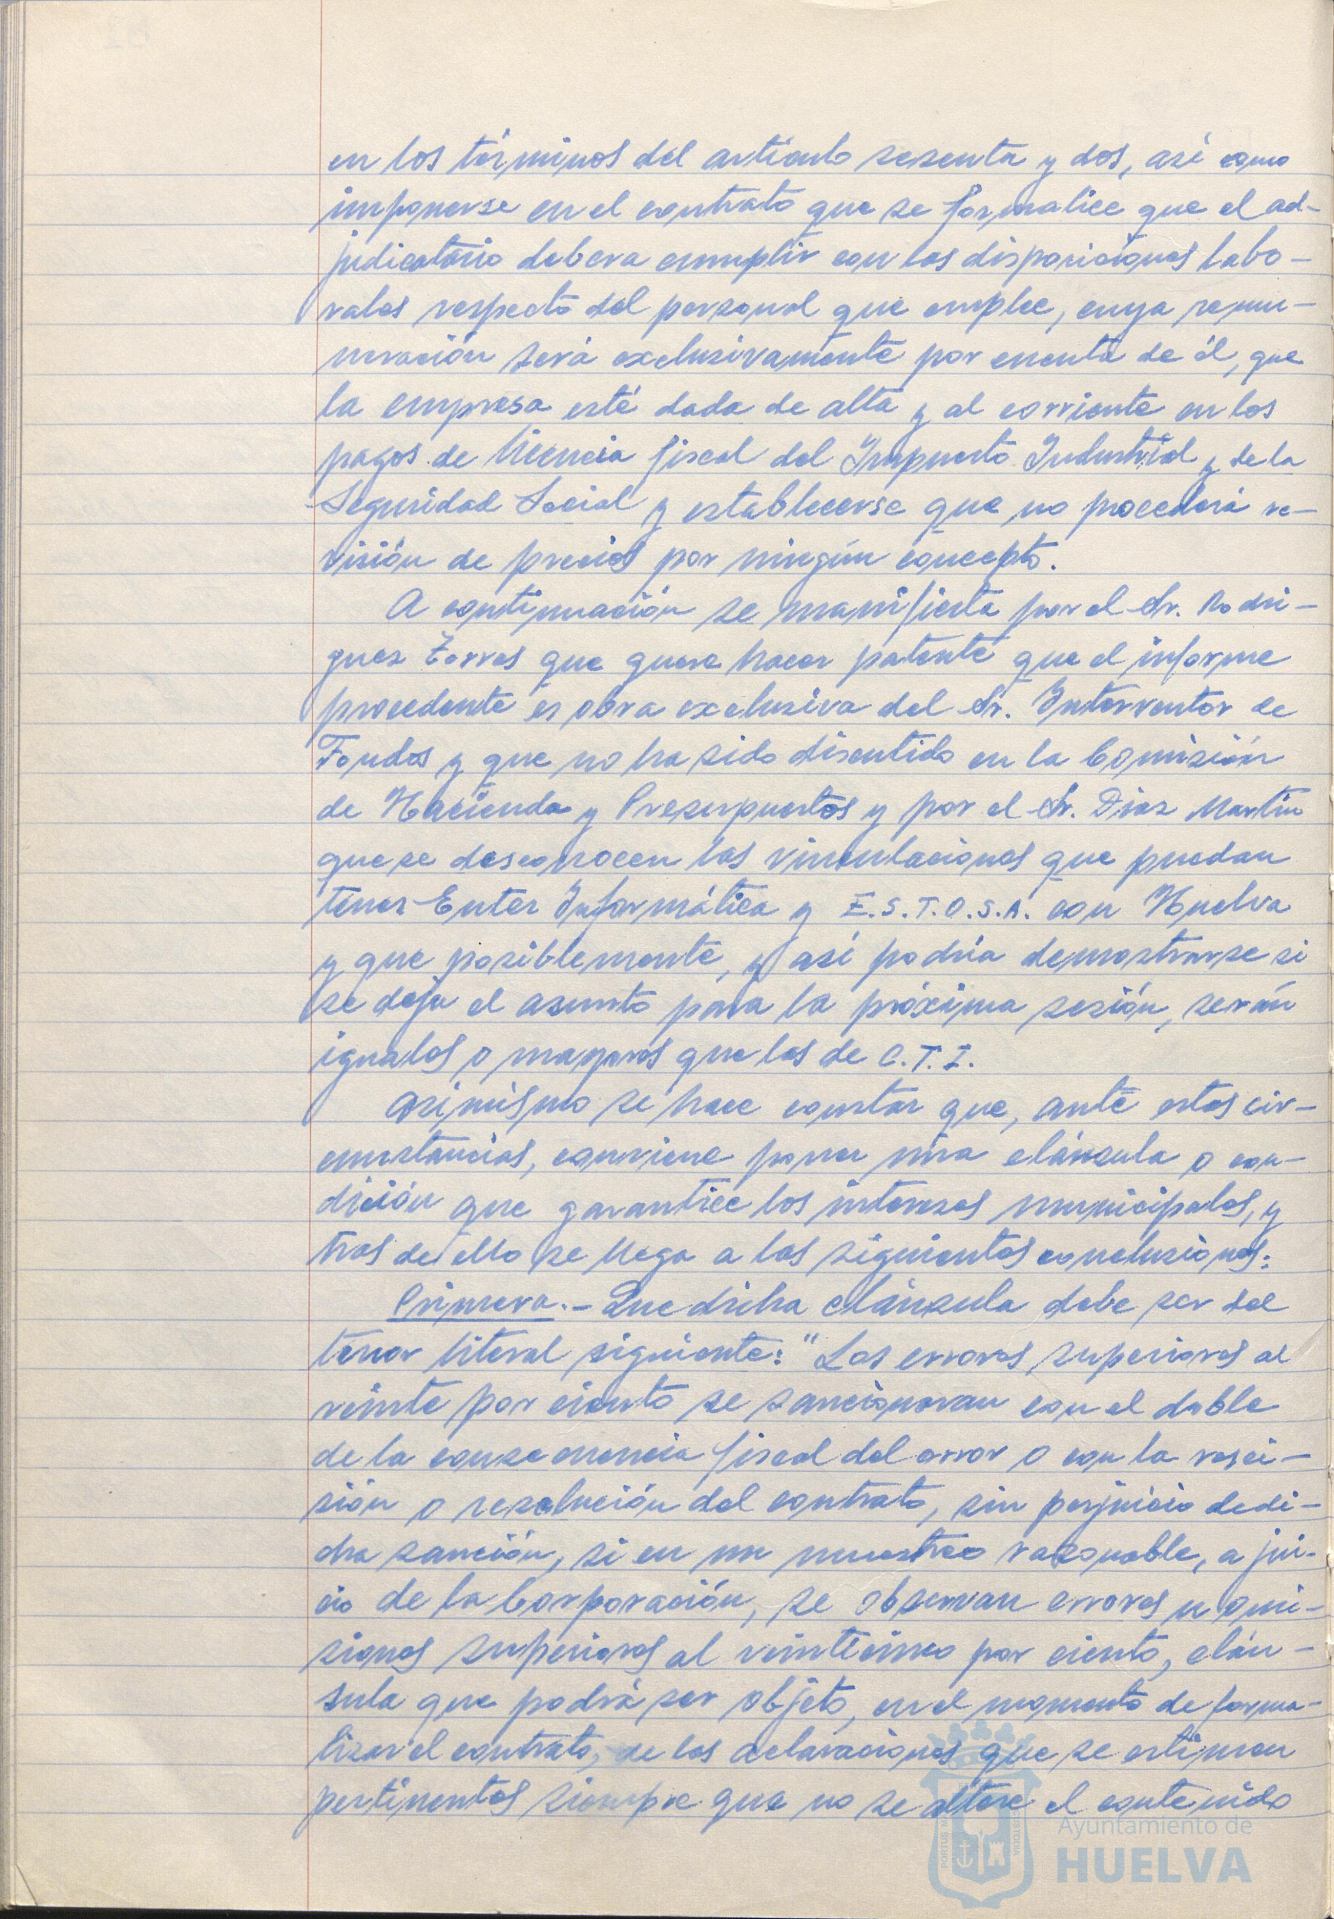 en los términos del artículo sesenta y dos, así como
imponerse en el contrato que se formalice que el ad-
judicatario debera cumplir con las disposiciones labo-
rales respecto del personal que emplee, cuya remu-
neración será exclusivamente por cuenta de él, que
la empresa esté dada de alta y al corriente en los
pagos de licencia fiscal del Impuesto Industrial y de la
Seguridad Social y establecerse que no procederá re-
visión de precios por ningún concepto.
A continuación se manifiesta por el Sr. Rodri-
guez Torres que quere hacer patente que el informe
procedente es obra exclusiva del Sr. Interventor de
Fondos y que no ha sido discutido en la Comisión
de Hacienda y Presupuestos y por el Sr. Diaz Martin
que se desconocen las vinculaciones que puedan
tener Enter Informática y E.S.T.O.S.A. con Huelva
y que posiblemente, y así podría demostrarse si
se deja el asunto para la próxima sesión, serán
iguales o mayores que las de C.T.I.
Asimismo se hace constar que, ante estas cir-
cunstancias, conviene poner una cláusula o con-
dición que garantice los intereses municipales, y
tras de ello se llega a las siguientes conclusiones:
Primera.- Que dicha cláusula debe ser del
tenor literal siguiente: "Los errores superiores al
veinte por ciento se sancionaran con el doble
de la consecuencia fiscal del error o con la resci-
sión o resolución del contrato, sin perjuicio de di-
cha sanción, si en un muestreo razonable, a jui-
cio de la Corporación, se observan errores u omi-
siones superiores al veinticinco por ciento, cláu-
sula que podrá ser objeto, en el momento de forma-
lizar el contrato, de las aclaraciones que se estimen
pertinentes siempre que no se altere el contenido
PORTUS MARIS ET TERRAE CUSTODIA
Ayuntamiento de
HUELVA